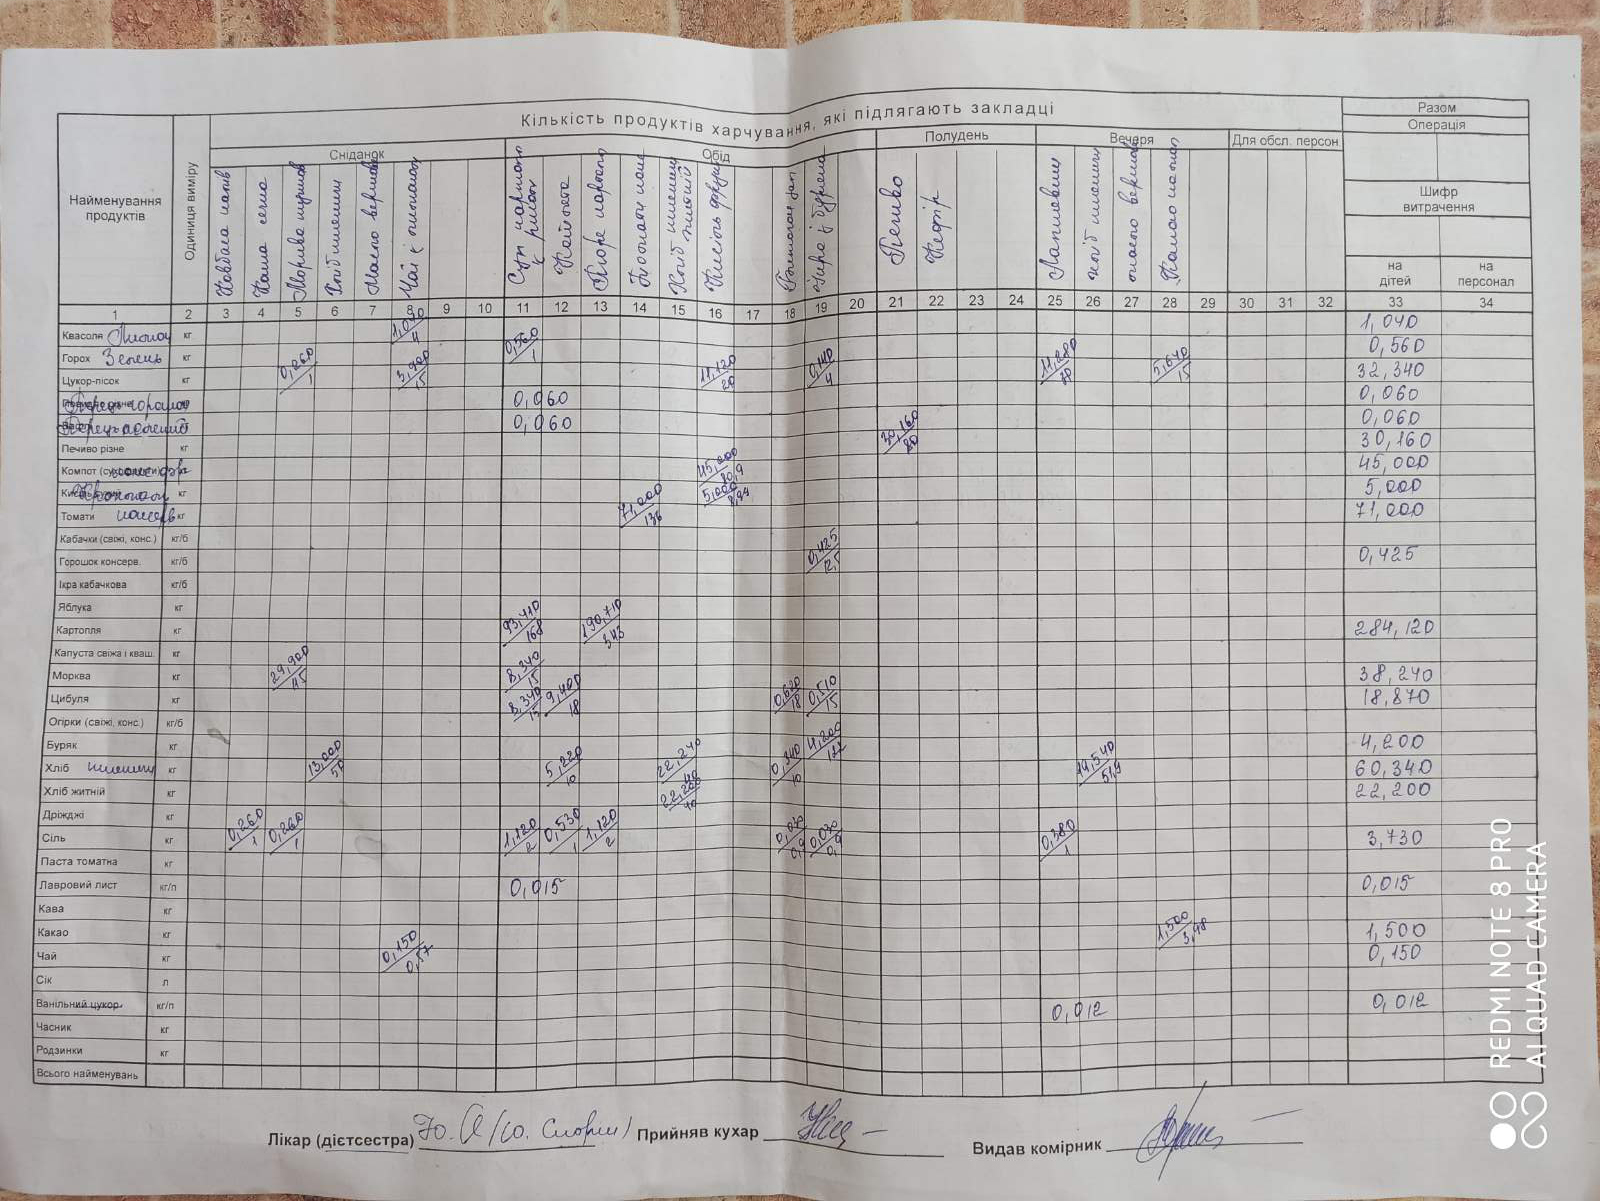 Кількість продуктів харчування, які підлягають закладці
Разом
Операція
Шифр витрачення
на дітей
на персонал
Найменування продуктів
Одиниця виміру
Сніданок
Обід
Полудень
Вечеря
Для обсл. персон
Каша
Масло
Чай з лимоном
Суп
з рисом
Пюре картопл
Хліб
Печиво
Кефір
1 2 3 4 5 6 7 8 9 10 11 12 13 14 15 16 17 18 19 20 21 22 23 24 25 26 27 28 29 30 31 32 33 34
Квасоля Лимон кг 1,040/4 1,040
Горох Зелень кг 0,560/1 0,560
Цукор-пісок кг 0,260/1 3,900/15 11,120/20 0,140/4 11,280/30 5,640/15 32,340
Перець горошок 0,060 0,060
Перець мелений 0,060 0,060
Печиво різне кг 30,160/80 30,160
Компот (сухофрукти) 45,000/80,9 45,000
Крохмаль кг 5,000/8,94 5,000
Томати консерв кг 71,000/136 71,000
Кабачки (свіжі, конс.) кг/б
Горошок консерв. кг/б 0,425/12,5 0,425
Ікра кабачкова кг/б
Яблука кг
Картопля кг 93,410/168 190,710/343 284,120
Капуста свіжа і кваш. кг
Морква кг 29,900/115 8,340/15 38,240
Цибуля кг 8,340/15 9,400/18 0,620/18 0,510/15 18,870
Огірки (свіжі, конс.) кг/б
Буряк кг 4,200 4,200
Хліб кг 13,000/50 5,220/10 22,240/40 0,340/10 19,540/51,9 60,340
Хліб житній кг 22,200/40 22,200
Дріжджі кг
Сіль кг 0,260/1 0,260/1 1,120/2 0,530/1 1,120/2 0,030/0,9 0,030/0,9 0,380/1 3,730
Паста томатна кг
Лавровий лист кг/п 0,015 0,015
Кава кг
Какао кг 1,500/3,98 1,500
Чай кг 0,150/0,57 0,150
Сік л
Ванільний цукор кг/п 0,012 0,012
Часник кг
Родзинки кг
Всього найменувань
Лікар (дієтсестра) Прийняв кухар Видав комірник
REDMI NOTE 8 PRO
AI QUAD CAMERA